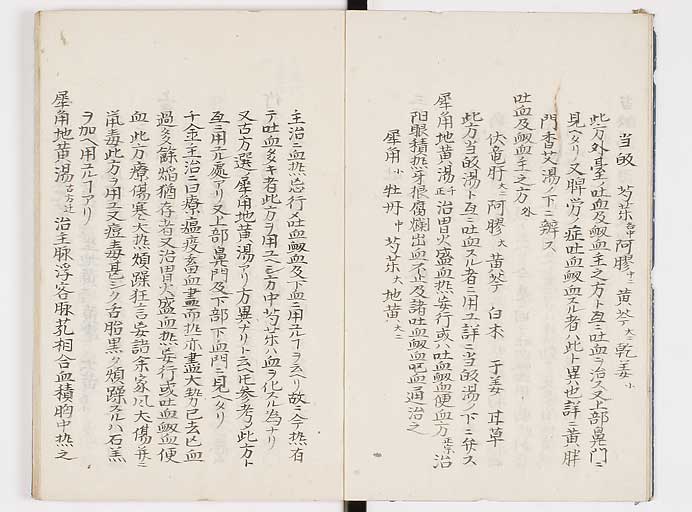 当皈 芍薬 中 阿膠 十二 黄芩 大二 乾姜 小
此方外臺ノ吐血及衂血主之方ト互ニ吐血ヲ治ス又上部鼻門ニ
見ヘタリ又脾労ノ症吐血衂血スル者ハ此ト異也詳ニ黄胖
門杳艾湯ノ下ニ辨ス
吐血及衂血主之方 外
伏竜肝 大二 阿膠 大 黄芩 白朮 干姜 甘草
此方当皈湯ト互ニ吐血スル者ニ用ユ詳ニ当皈湯ノ下ニ弁ス
犀角地黄湯 千正 治胃火盛血热妄行或ハ吐血衂血便血方 正宗 治
陽明積热牙根腐爛出血不止及諸吐血衂血呕血通治之
犀角 小 牡丹 中 芍薬 大 地黄 大二
主治ニ血热妄行〆吐血衂血及下血ニ用ユルヿヲ云ヘリ故ニ今热有
テ吐血多キ者此方ヲ用ユヘシ方中芍薬ハ血ヲ化スル為ナリ
又古方選ノ犀角地黄湯アリ方異ナリト云ヘ圧参考ノ此方ト
互ニ用ユル處アリ又上部鼻門及下部下血門ニ見ヘタリ
千金ノ主治ニ曰療瘟疫畜血盡而热亦盡大势已去凶血
過多餘焔猶存者又治胃火盛血热妄行或吐血衂血便
血此方療傷寒大热煩躁狂言妄語余家ハ大傷弁ニ
鼠毒此方ヲ用ユ又痘毒甚シク舌胎黒ク煩躁スルハ石羔
ヲ加ヘ用ユルヿアリ
犀角地黄湯 治主脉浮客脉芤相合血積胸中热之